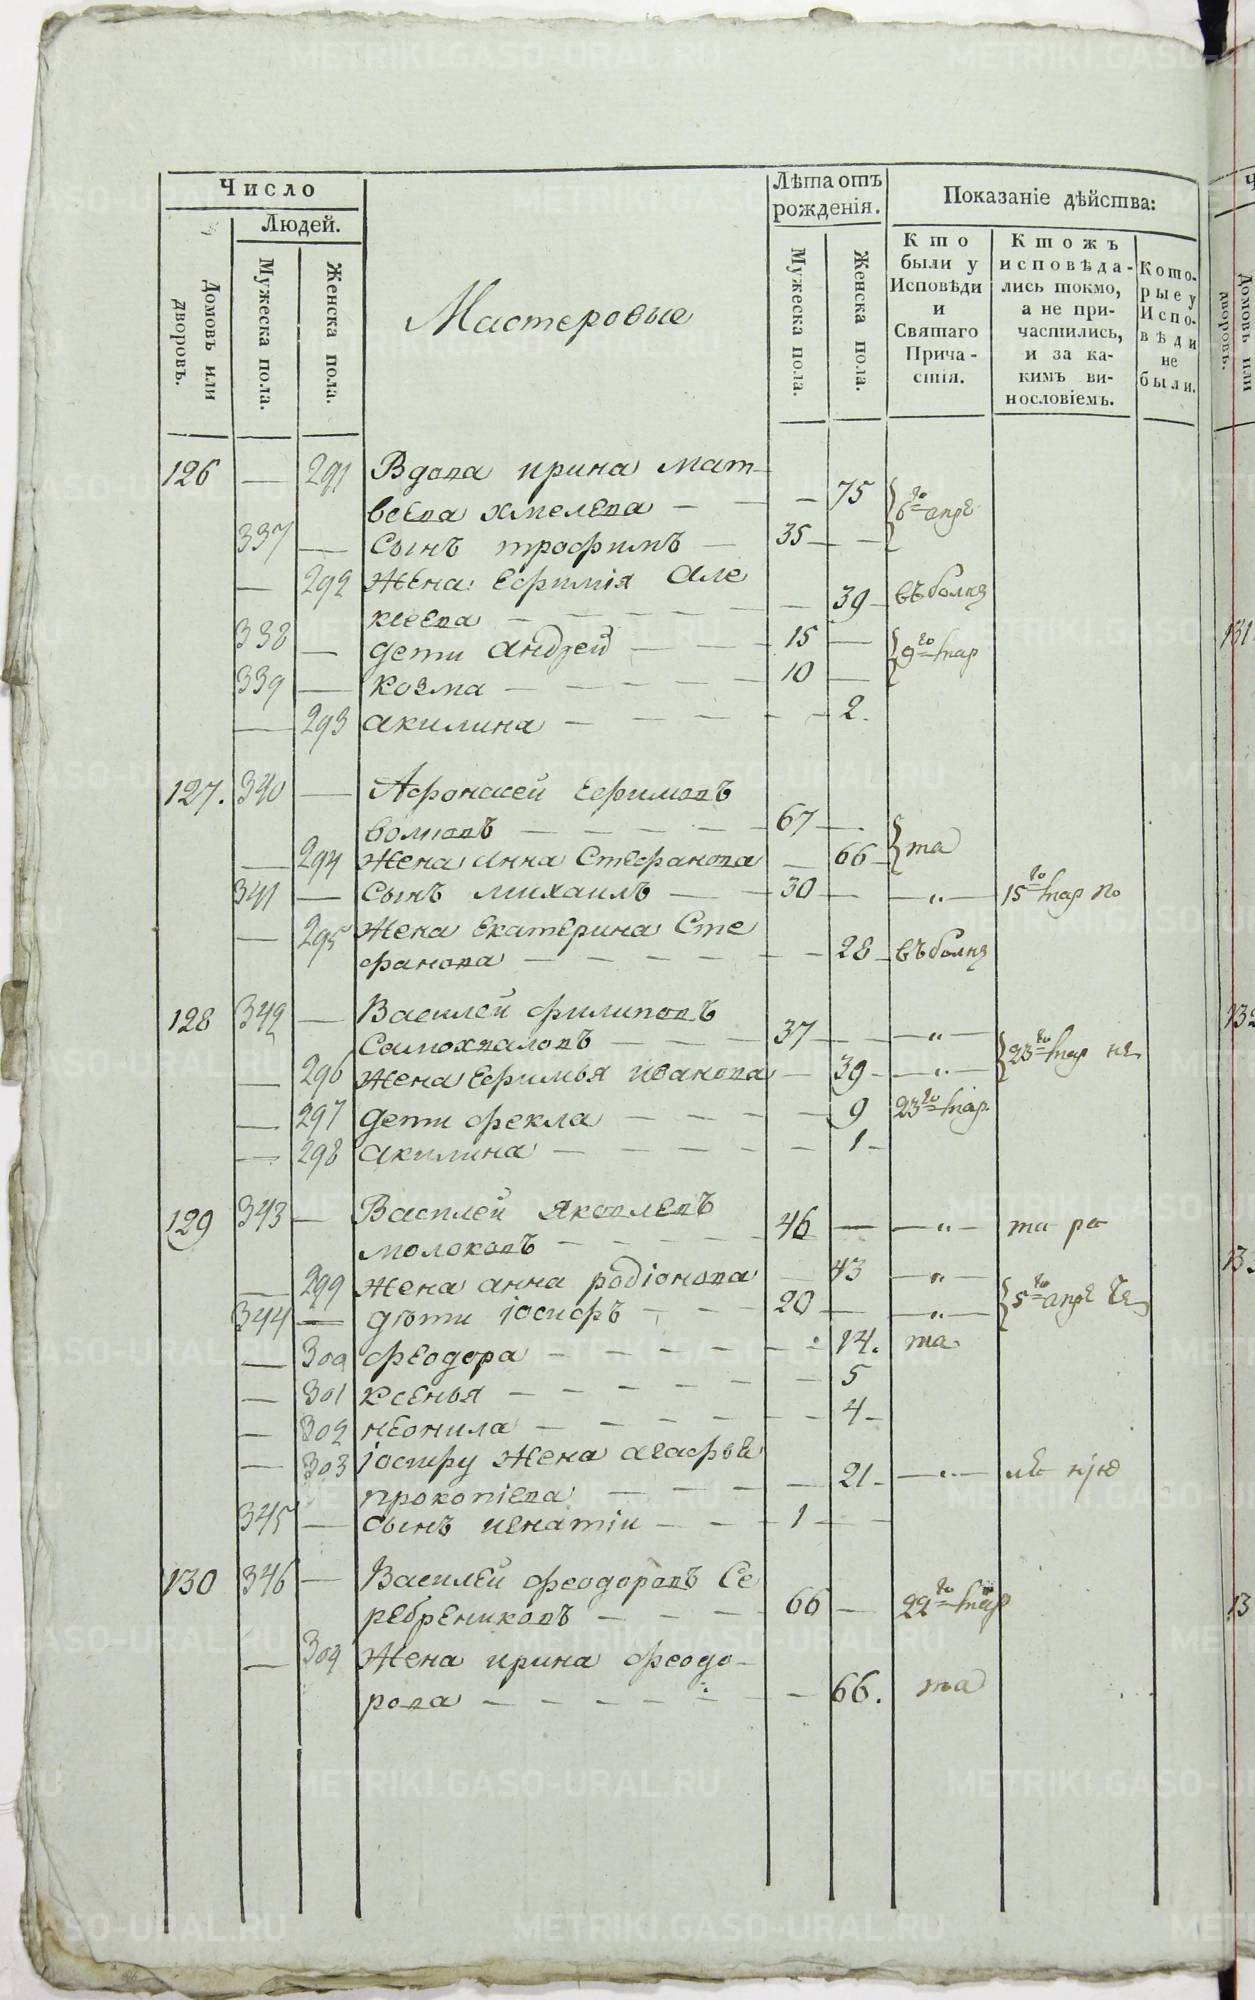 Число
Людей.
Домовъ или дворовъ.
Мужеска пола.
Женска пола.
Мастеровые
Лѣта отъ
рожденія.
Мужеска пола.
Женска пола.
Показаніе дѣйства:
Кто
были у
Исповѣди
и
Святаго
Прича-
стія.
Ктожъ
исповѣда-
лись токмо,
а не при-
частились,
и за ка-
кимъ ви-
нословіемъ.
Кото-
рые у
Испо-
вѣди
не
были.
126 — 291 Вдова ирина мат-
веева хмелева — — 75 6го апре
337 — Сынъ трофимъ — 35 — —
— 292 Жена Ефимія Але
ксеева — 39 — въ болѣз
338 — дети Андрей — 15 — 9го мар
339 — козма — 10 —
— 293 акилина — 2.
127. 340 — Афонасей Ефимовъ
волковъ — 67 —
— 294 Жена Анна Стефанова — 66 — та
341 — Сынъ михаилъ — 30 — — „ — 15го мар по
— 295 Жена Екатерина Сте
фанова — 28 — въ болѣз
128 342 — Василей филиповъ
Самохваловъ — 37 — — „ — 23го мар не
— 296 Жена Ефимья иванова — 39 — — „ —
— 297 дети фекла — 9 23го мар
— 298 акилина — 1 —
129 343 — Василей Яковлевъ
молоковъ — 46 — — „ — та ра
— 299 Жена анна родіонова — 43 — „ —
344 — дѣти іосифъ — 20 — — „ — 5го апре
— 300 феодора — 14. та
— 301 ксенья — 5
— 302 неонила — 4 —
— 303 іосифу Жена агафья
прокопіева — 21 — — „ —
345 — Сынъ игнатіи — 1 — —
130 346 — Василей феодоровъ Се
ребрениковъ — 66 — 22го мар
— 304 Жена ирина феодо-
рова — 66. та
131
132
133
13
METRIKI.GASO-URAL.RU